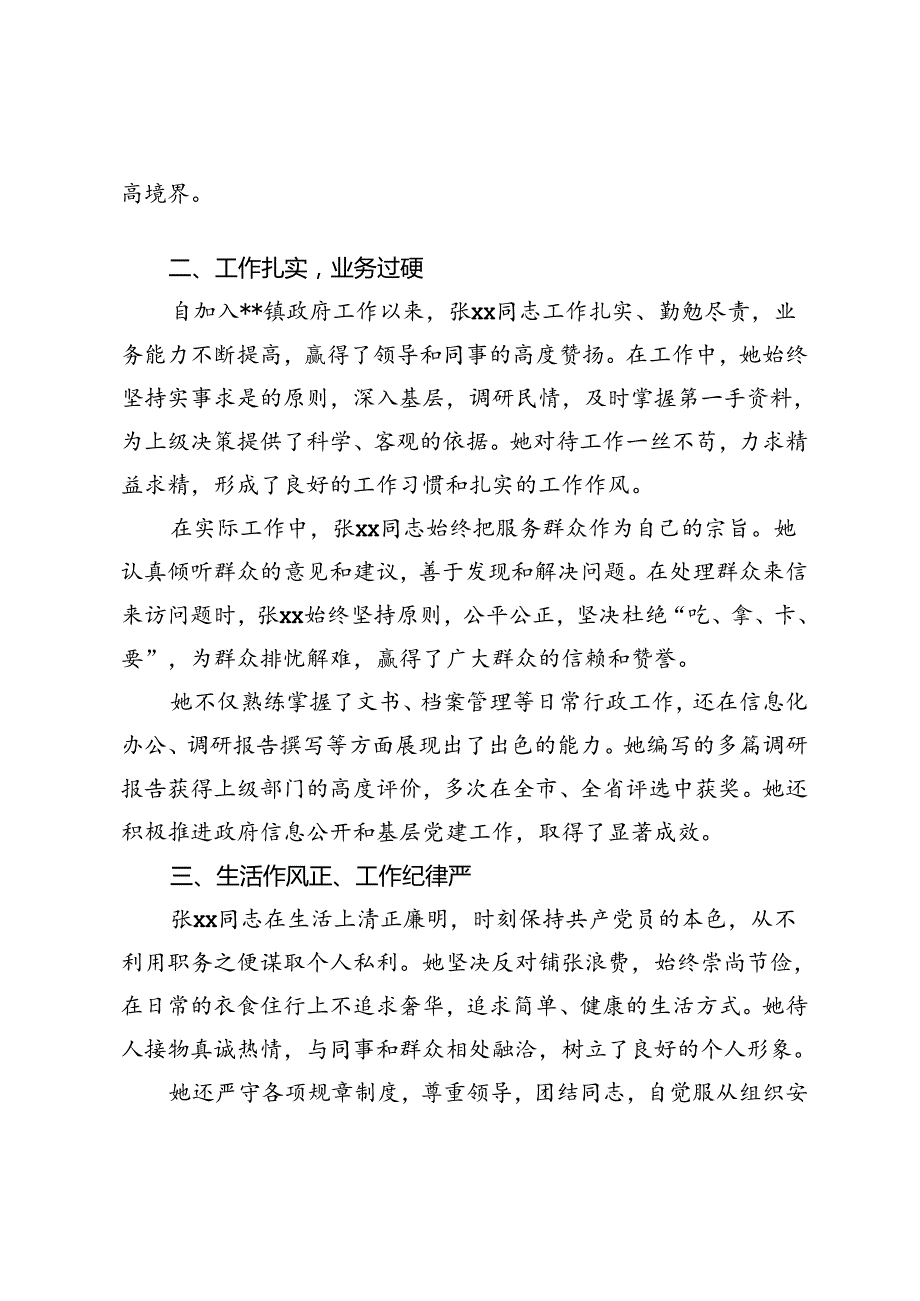 高境界。
二、工作扎实，业务过硬
自加入**镇政府工作以来，张xx同志工作扎实、勤勉尽责，业
务能力不断提高，赢得了领导和同事的高度赞扬。在工作中，她始终
坚持实事求是的原则，深入基层，调研民情，及时掌握第一手资料，
为上级决策提供了科学、客观的依据。她对待工作一丝不苟，力求精
益求精，形成了良好的工作习惯和扎实的工作作风。
在实际工作中，张xx同志始终把服务群众作为自己的宗旨。她
认真倾听群众的意见和建议，善于发现和解决问题。在处理群众来信
来访问题时，张xx始终坚持原则，公平公正，坚决杜绝“吃、拿、卡、
要”，为群众排忧解难，赢得了广大群众的信赖和赞誉。
她不仅熟练掌握了文书、档案管理等日常行政工作，还在信息化
办公、调研报告撰写等方面展现出了出色的能力。她编写的多篇调研
报告获得上级部门的高度评价，多次在全市、全省评选中获奖。她还
积极推进政府信息公开和基层党建工作，取得了显著成效。
三、生活作风正、工作纪律严
张xx同志在生活上清正廉明，时刻保持共产党员的本色，从不
利用职务之便谋取个人私利。她坚决反对铺张浪费，始终崇尚节俭，
在日常的衣食住行上不追求奢华，追求简单、健康的生活方式。她待
人接物真诚热情，与同事和群众相处融洽，树立了良好的个人形象。
她还严守各项规章制度，尊重领导，团结同志，自觉服从组织安